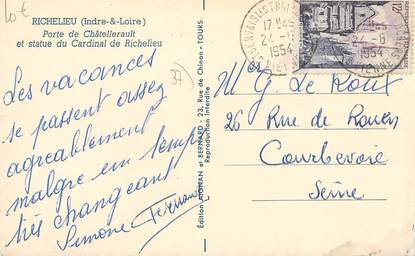 10€
RICHELIEU (Indre-&-Loire)
Porte de Châtellerault
et statue du Cardinal de Richelieu
37
Les vacances
se passent assez
agréablement
malgre un temps
très changeant.
Simone Fernand
Edition AIGNAN et BERNARD - 23, Rue de Chinon - TOURS
Reproduction interdite
17H45
24-8
1954
VIENNE
12F
24-8
1954
VIENNE
Mr G. Le Roux
26 Rue de Rouen
Courbevoie
Seine